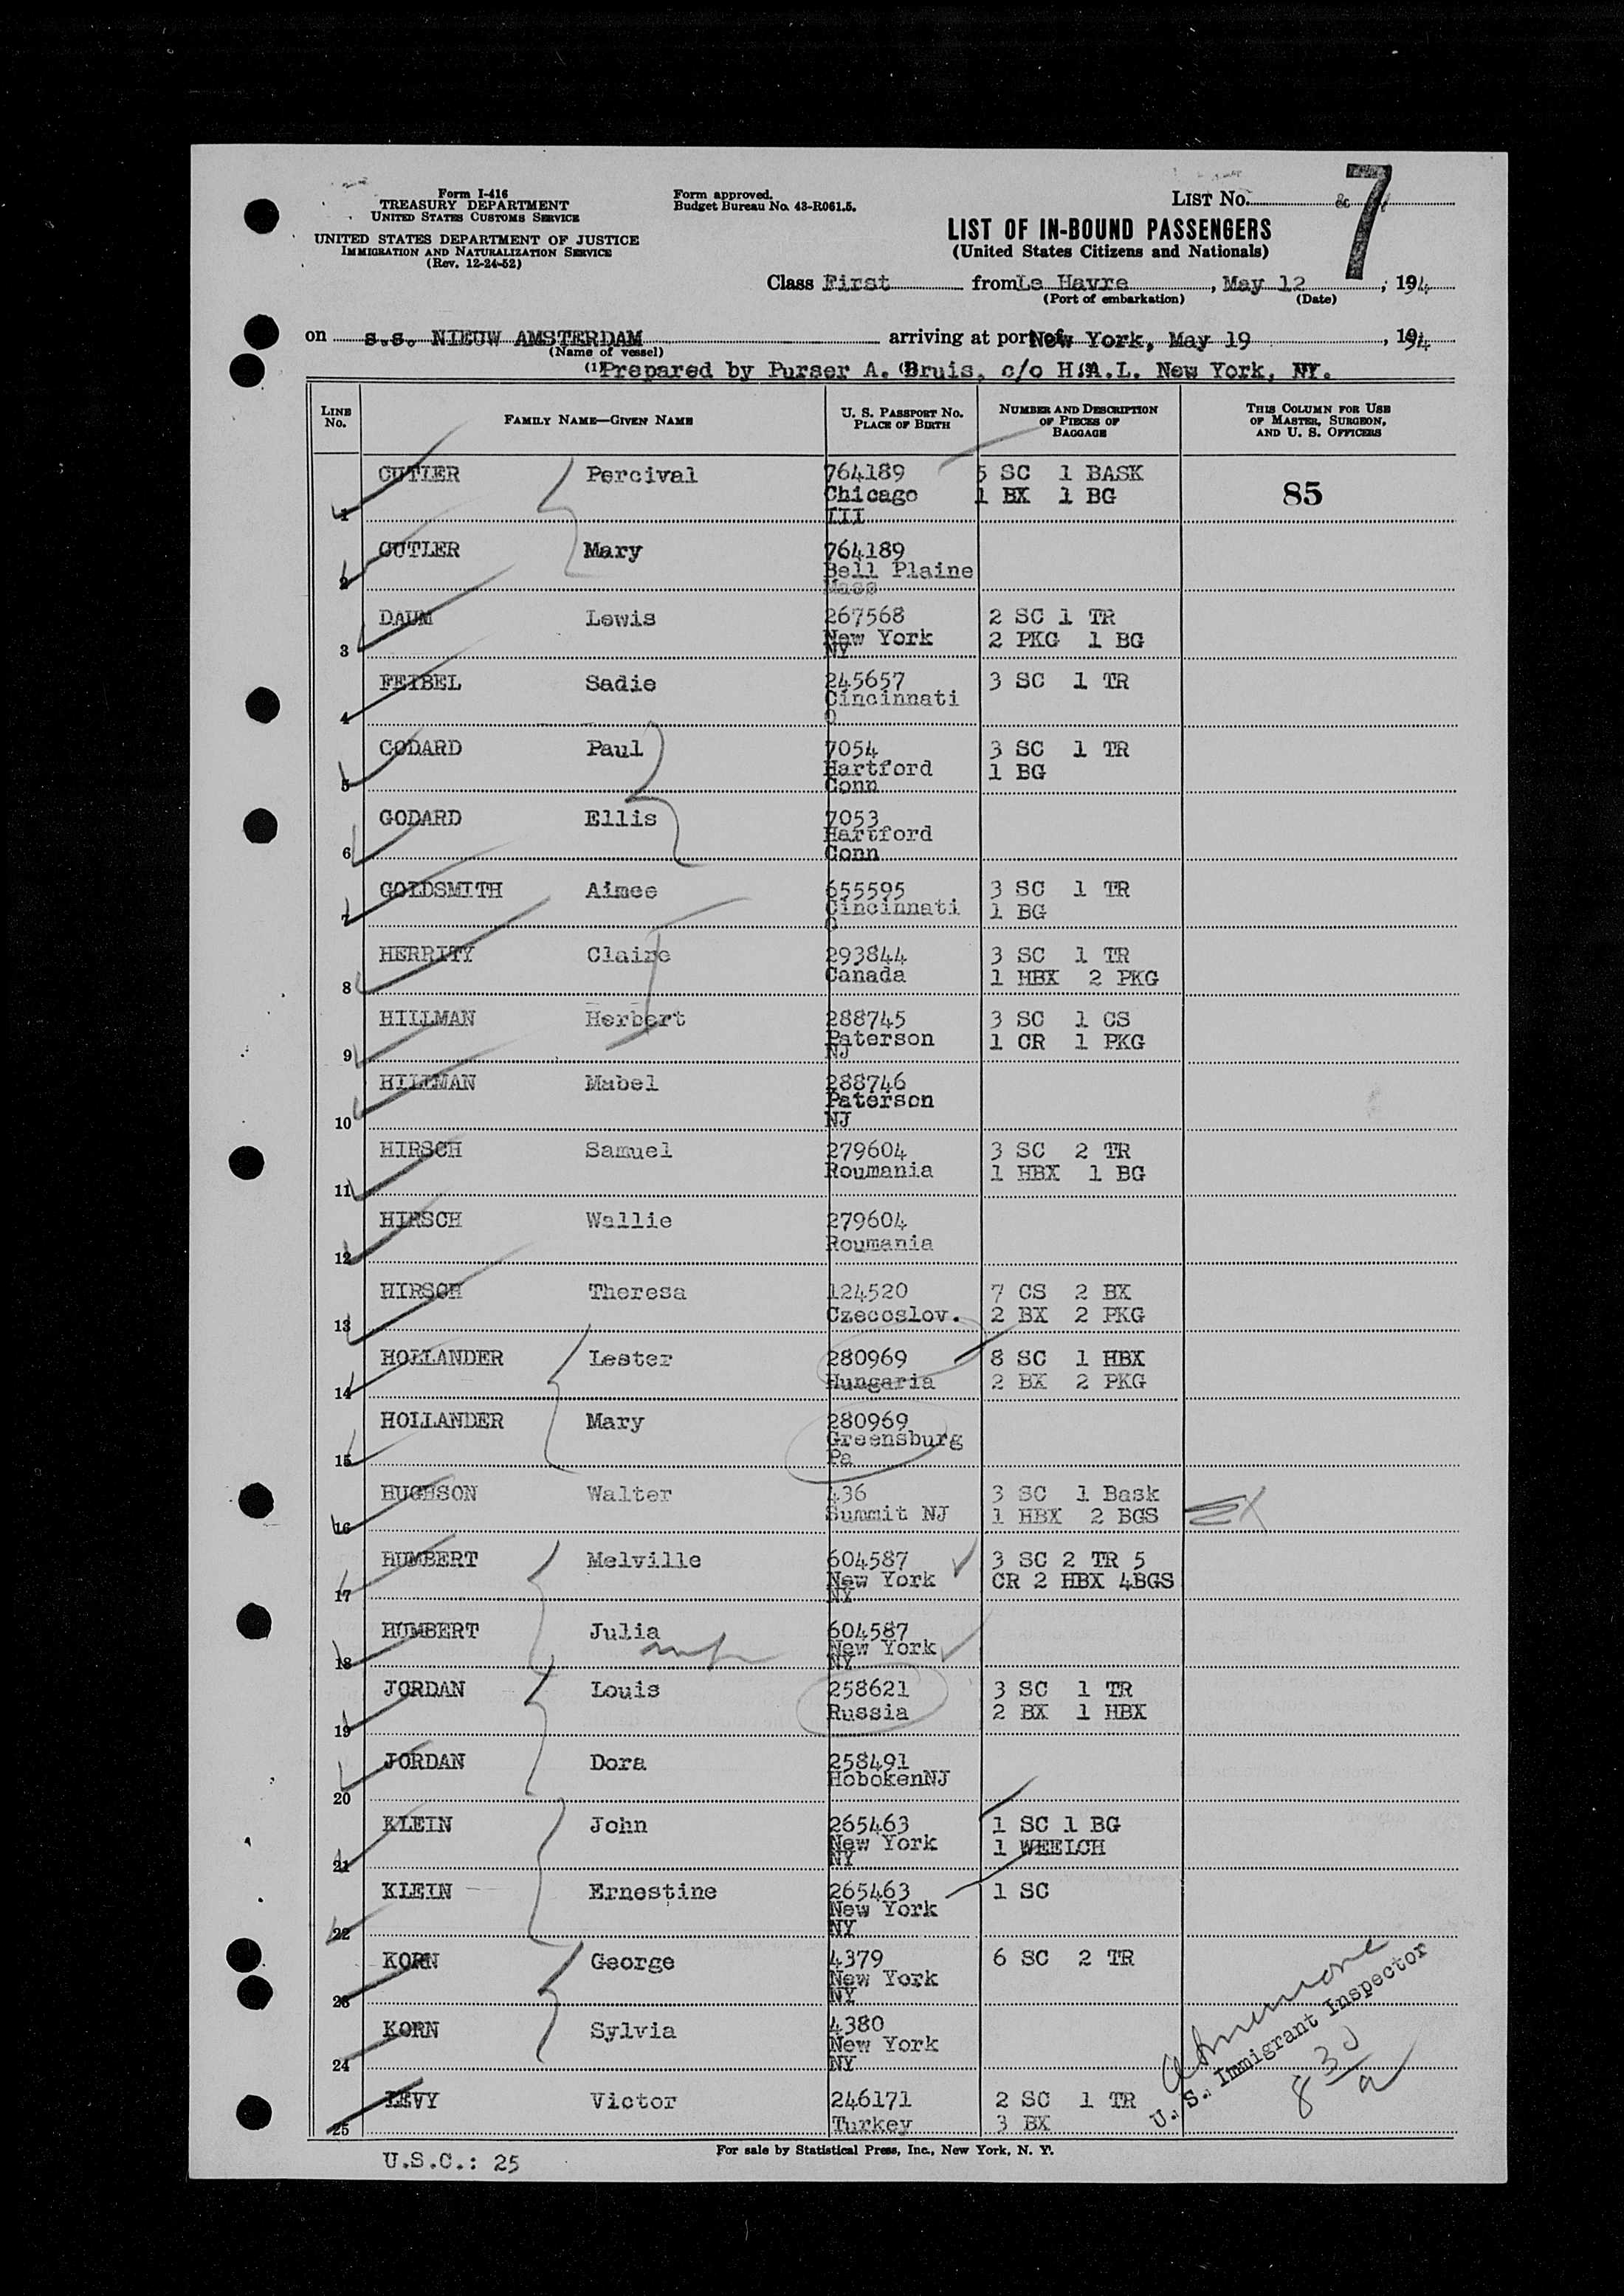 Form I-416
TREASURY DEPARTMENT
UNITED STATES CUSTOMS SERVICE
UNITED STATES DEPARTMENT OF JUSTICE
IMMIGRATION AND NATURALIZATION SERVICE
(Rev. 12-24-52)
Form approved.
Budget Bureau No. 43-R061.5.
LIST No.
7
LIST OF IN-BOUND PASSENGERS
(United States Citizens and Nationals)
Class First from Le Havre, May 12, 194
(Port of embarkation) (Date)
on s.s. NIEUW AMSTERDAM arriving at port of New York, May 19, 194
(Name of vessel)
(1) Prepared by Purser A. Bruis, c/o H.A.L. New York, NY.
LINE No. FAMILY NAME—GIVEN NAME U. S. PASSPORT No. PLACE OF BIRTH NUMBER AND DESCRIPTION OF PIECES OF BAGGAGE THIS COLUMN FOR USE OF MASTER, SURGEON, AND U. S. OFFICERS
1 CUTLER Percival 764189 5 SC 1 BASK
Chicago 1 BX 1 BG 85
III
2 CUTLER Mary 764189
Bell Plaine
Mass
3 DAUM Lewis 267568 2 SC 1 TR
New York 2 PKG 1 BG
NY
4 FEIBEL Sadie 245657 3 SC 1 TR
Cincinnati
O
5 GODARD Paul 7054 3 SC 1 TR
Hartford 1 BG
Conn
6 GODARD Ellis 7053
Hartford
Conn
7 GOLDSMITH Aimee 655595 3 SC 1 TR
Cincinnati 1 BG
O
8 HERRITY Claire 293844 3 SC 1 TR
Canada 1 HBX 2 PKG
9 HILLMAN Herbert 288745 3 SC 1 CS
Paterson 1 CR 1 PKG
NJ
10 HILLMAN Mabel 288746
Paterson
NJ
11 HIRSCH Samuel 279604 3 SC 2 TR
Roumania 1 HBX 1 BG
12 HIRSCH Wallie 279604
Roumania
13 HIRSCH Theresa 124520 7 CS 2 BX
Czecoslov. 2 BX 2 PKG
14 HOLLANDER Lester 280969 8 SC 1 HBX
Hungaria 2 BX 2 PKG
15 HOLLANDER Mary 280969
Greensburg
Pa
16 HUGHSON Walter 436 3 SC 1 Bask
Summit NJ 1 HBX 2 BGS
17 HUMBERT Melville 604587 3 SC 2 TR 5
New York CR 2 HBX 4BGS
NY
18 HUMBERT Julia 604587
New York
NY
19 JORDAN Louis 258621 3 SC 1 TR
Russia 2 BX 1 HBX
20 JORDAN Dora 258491
HobokenNJ
21 KLEIN John 265463 1 SC 1 BG
New York 1 WEELCH
NY
22 KLEIN Ernestine 265463 1 SC
New York
NY
23 KORN George 4379 6 SC 2 TR
New York
NY
24 KORN Sylvia 4380
New York
NY
25 LEVY Victor 246171 2 SC 1 TR
Turkey 3 BX
U. S. Immigrant Inspector
8 30 a
For sale by Statistical Press, Inc., New York, N. Y.
U.S.C.: 25